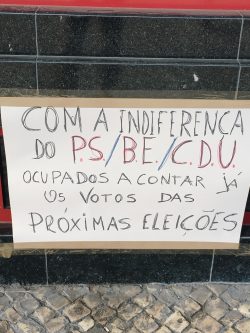 COM A INDIFERENÇA
DO P.S./B.E./C.D.U.
OCUPADOS A CONTAR JÁ
OS VOTOS DAS
PRÓXIMAS ELEIÇÕES